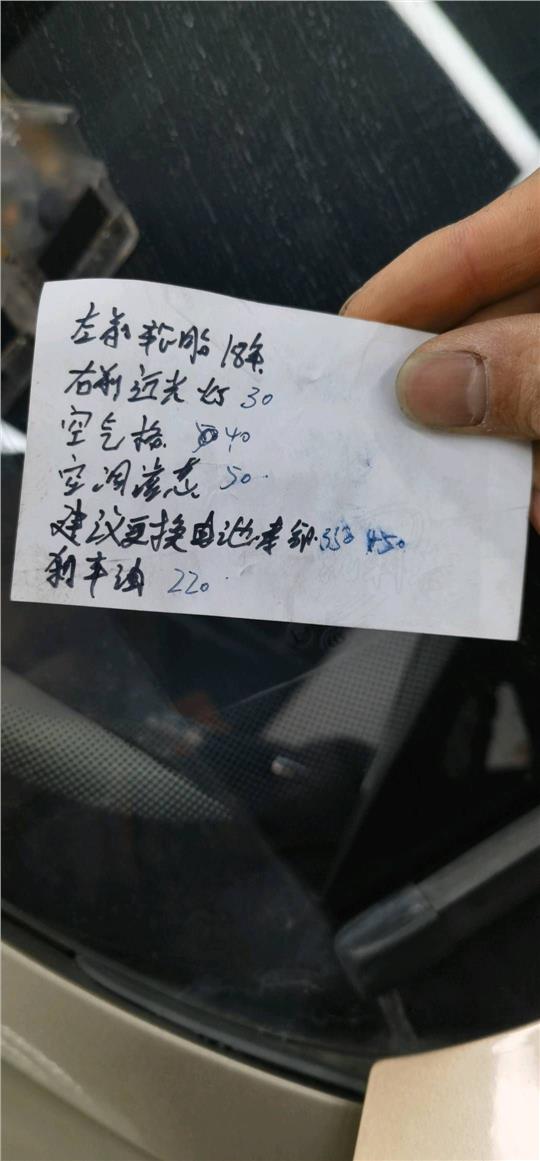 左前轮胎 18年
右前近光灯 30
空气格 40
空调滤芯 50
建议更换 350 450
刹车油 220